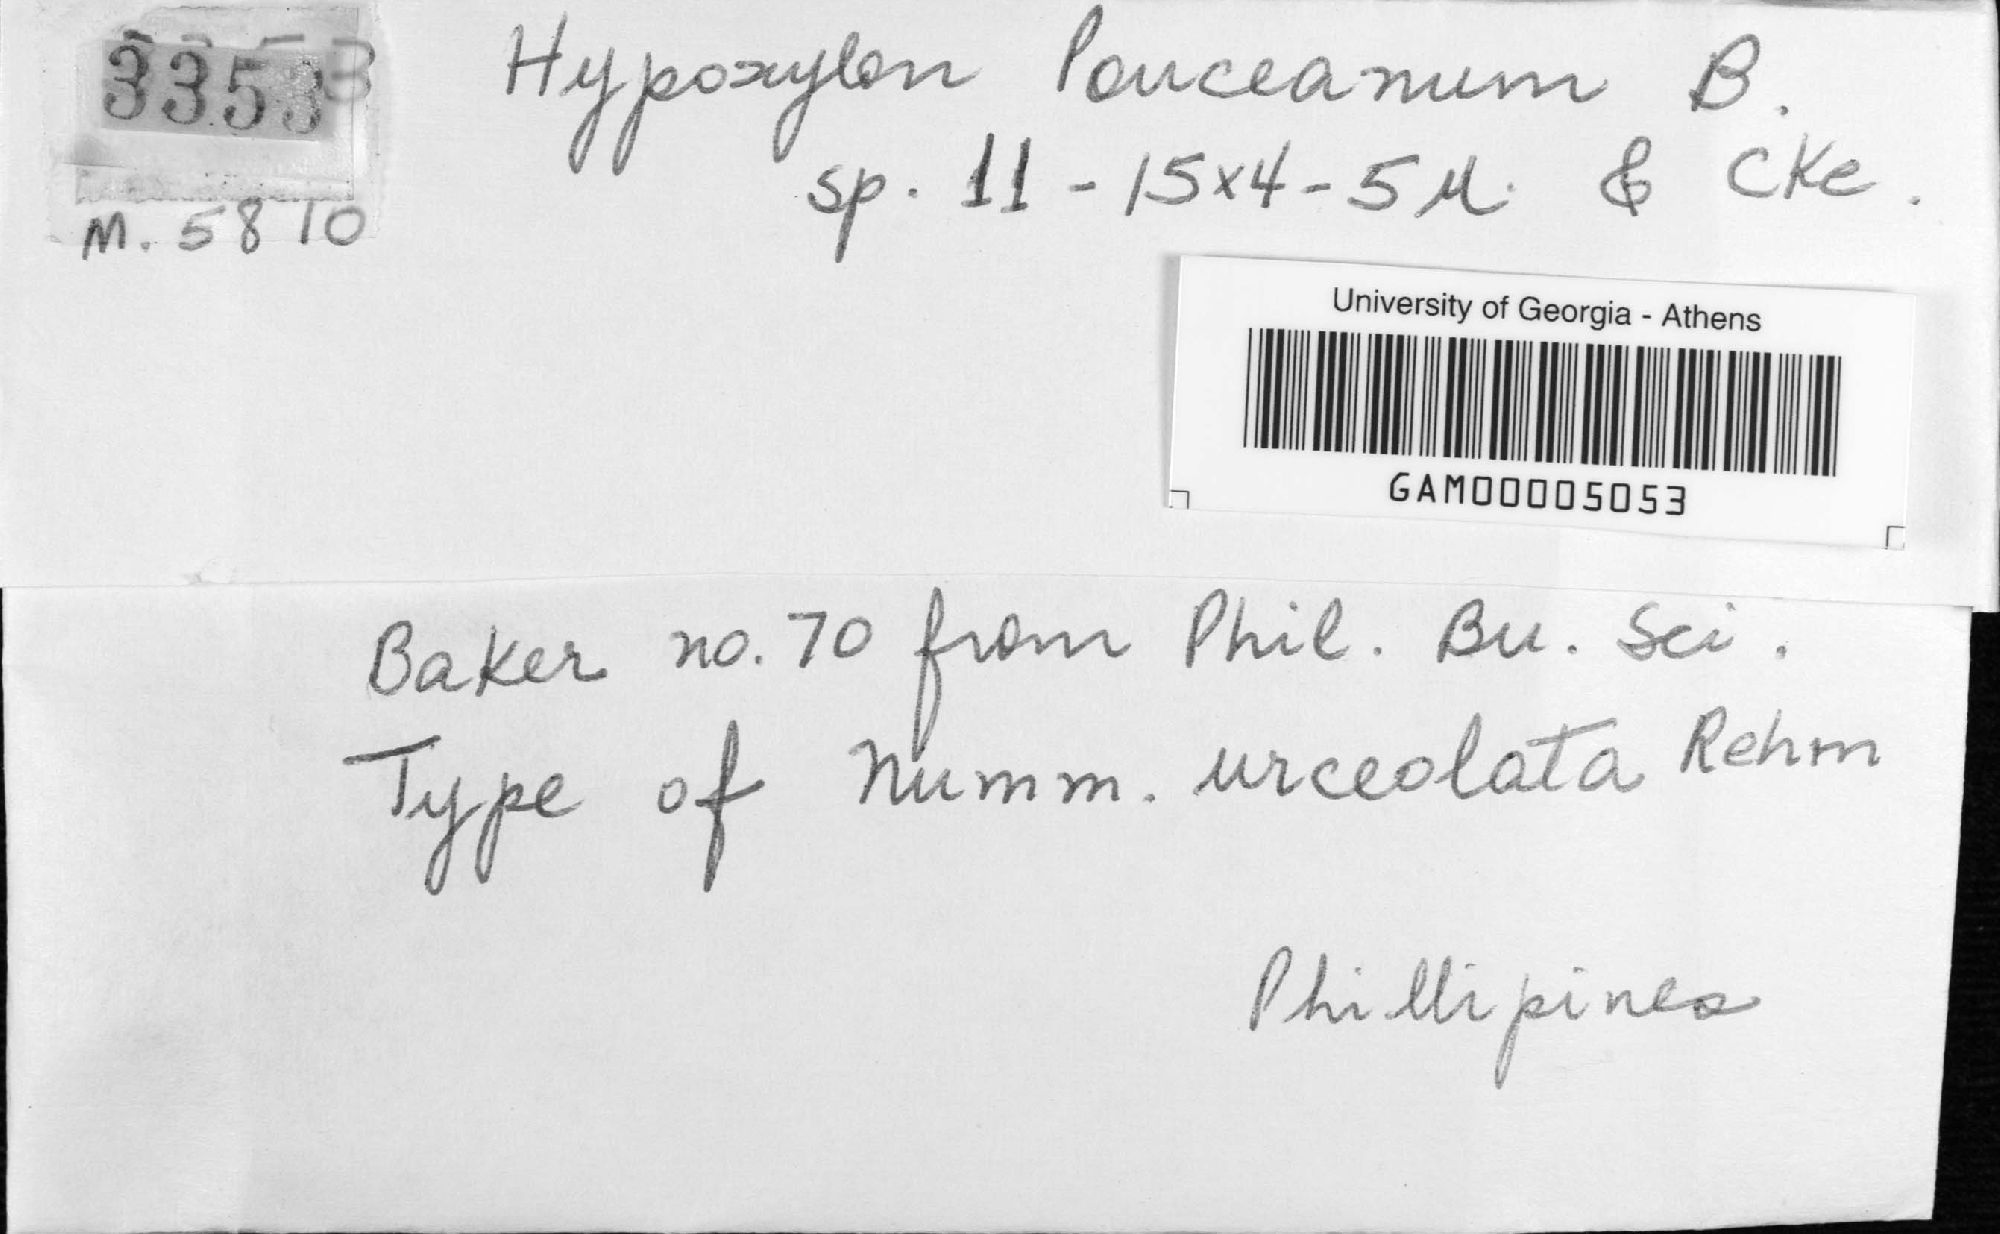 3353
M. 5810
Hypoxylon Pouceanum B.
sp. 11-15x4-5µ. & CKe.
University of Georgia - Athens
GAM00005053
Baker no. 70 from Phil. Bu. Sci.
Type of Numm. urceolata Rehm
Phillipines